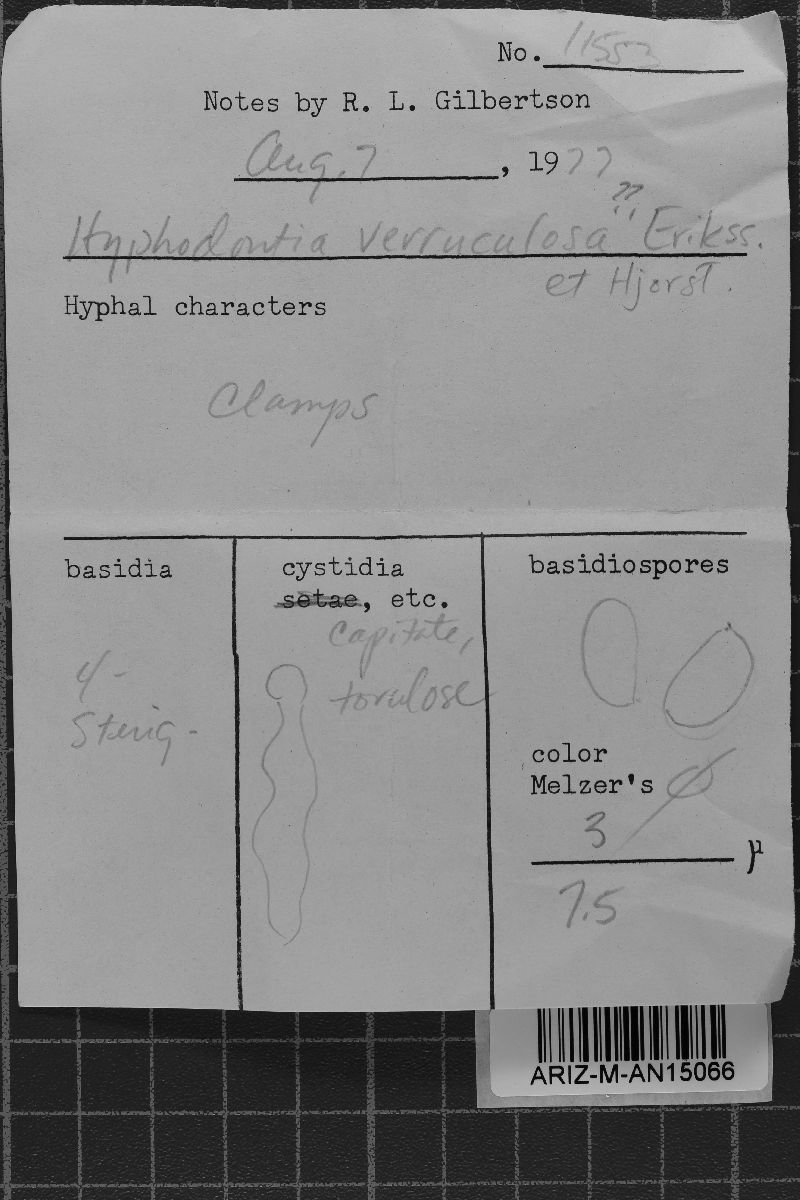 No. 11553
Notes by R. L. Gilbertson
Aug. 7, 1977
Hyphodontia verruculosa" Erikss.
et Hjorst.
Hyphal characters
Clamps
basidia
4-
Sterig-
cystidia
setae, etc.
capitate,
torulose
basidiospores
color
Melzer's ∅
3
µ
7.5
ARIZ-M-AN15066